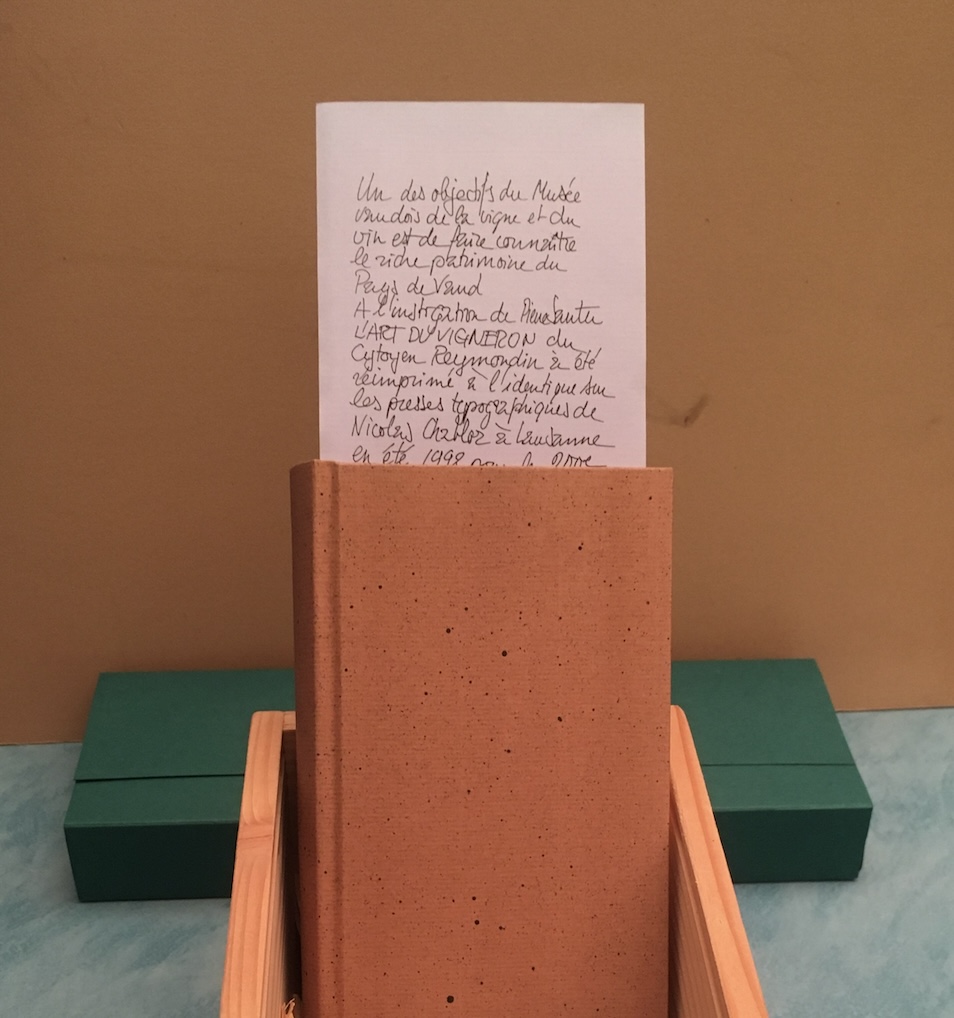 Un des objectifs du Musée
vaudois de la vigne et du
vin est de faire connaître
le riche patrimoine du
Pays de Vaud
A l'instigation de Pierre Santu
L'ART DU VIGNERON du
Cytoyen Reymondin à été
réimprimé à l'identique sur
les presses typographiques de
Nicolas Chabloz à Lausanne
en été 1998 pour le